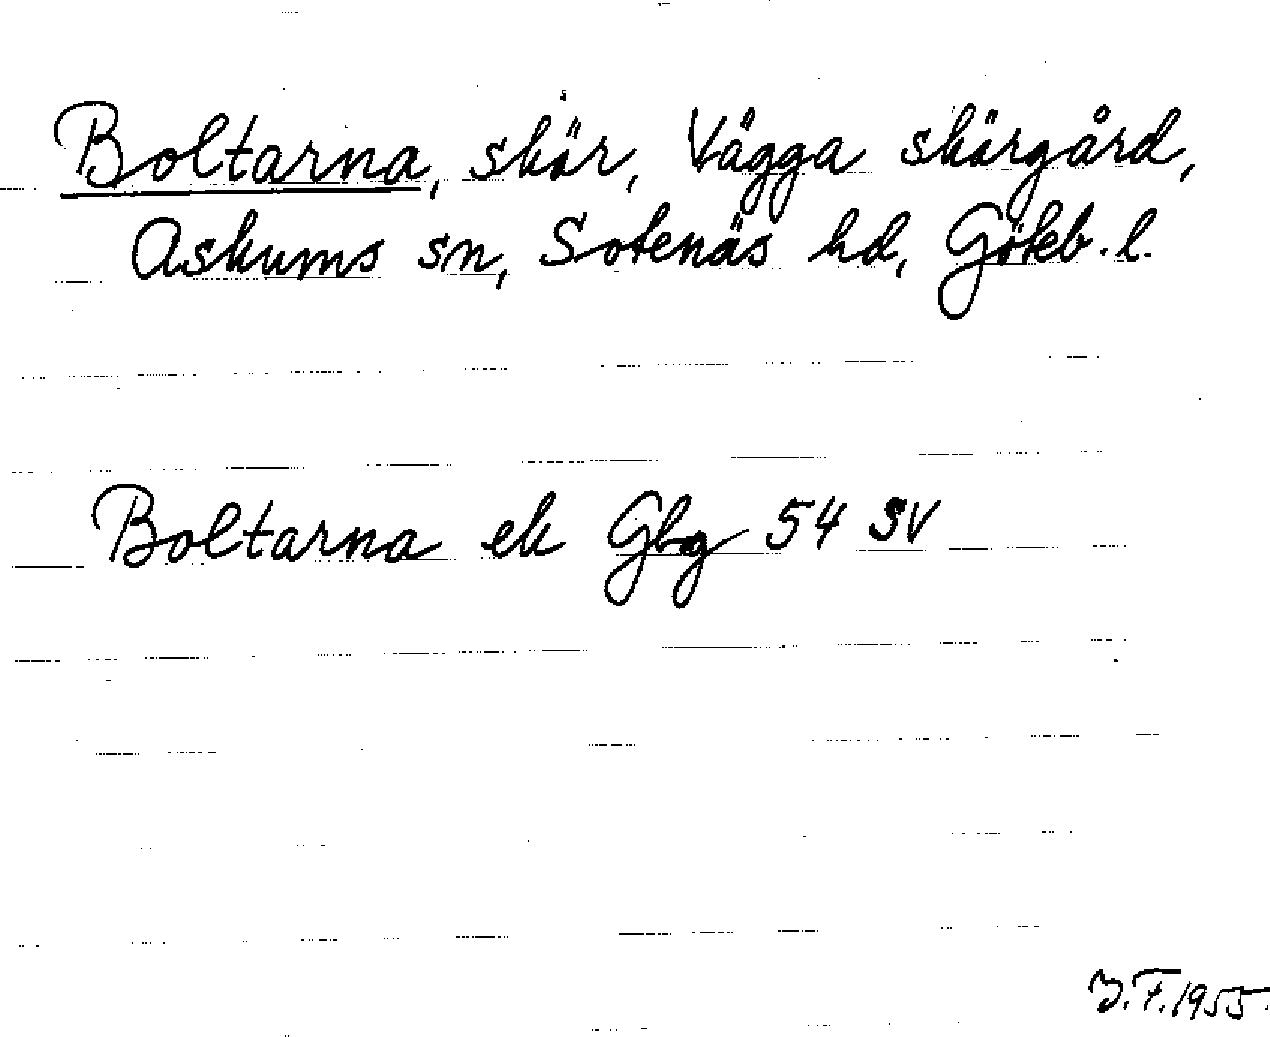 Boltarna, skär, Vägga skärgård,
Askums sn, Sotenäs hd, Göteb. l.
Boltarna ek Gbg 54 SV
J.F. 1955.